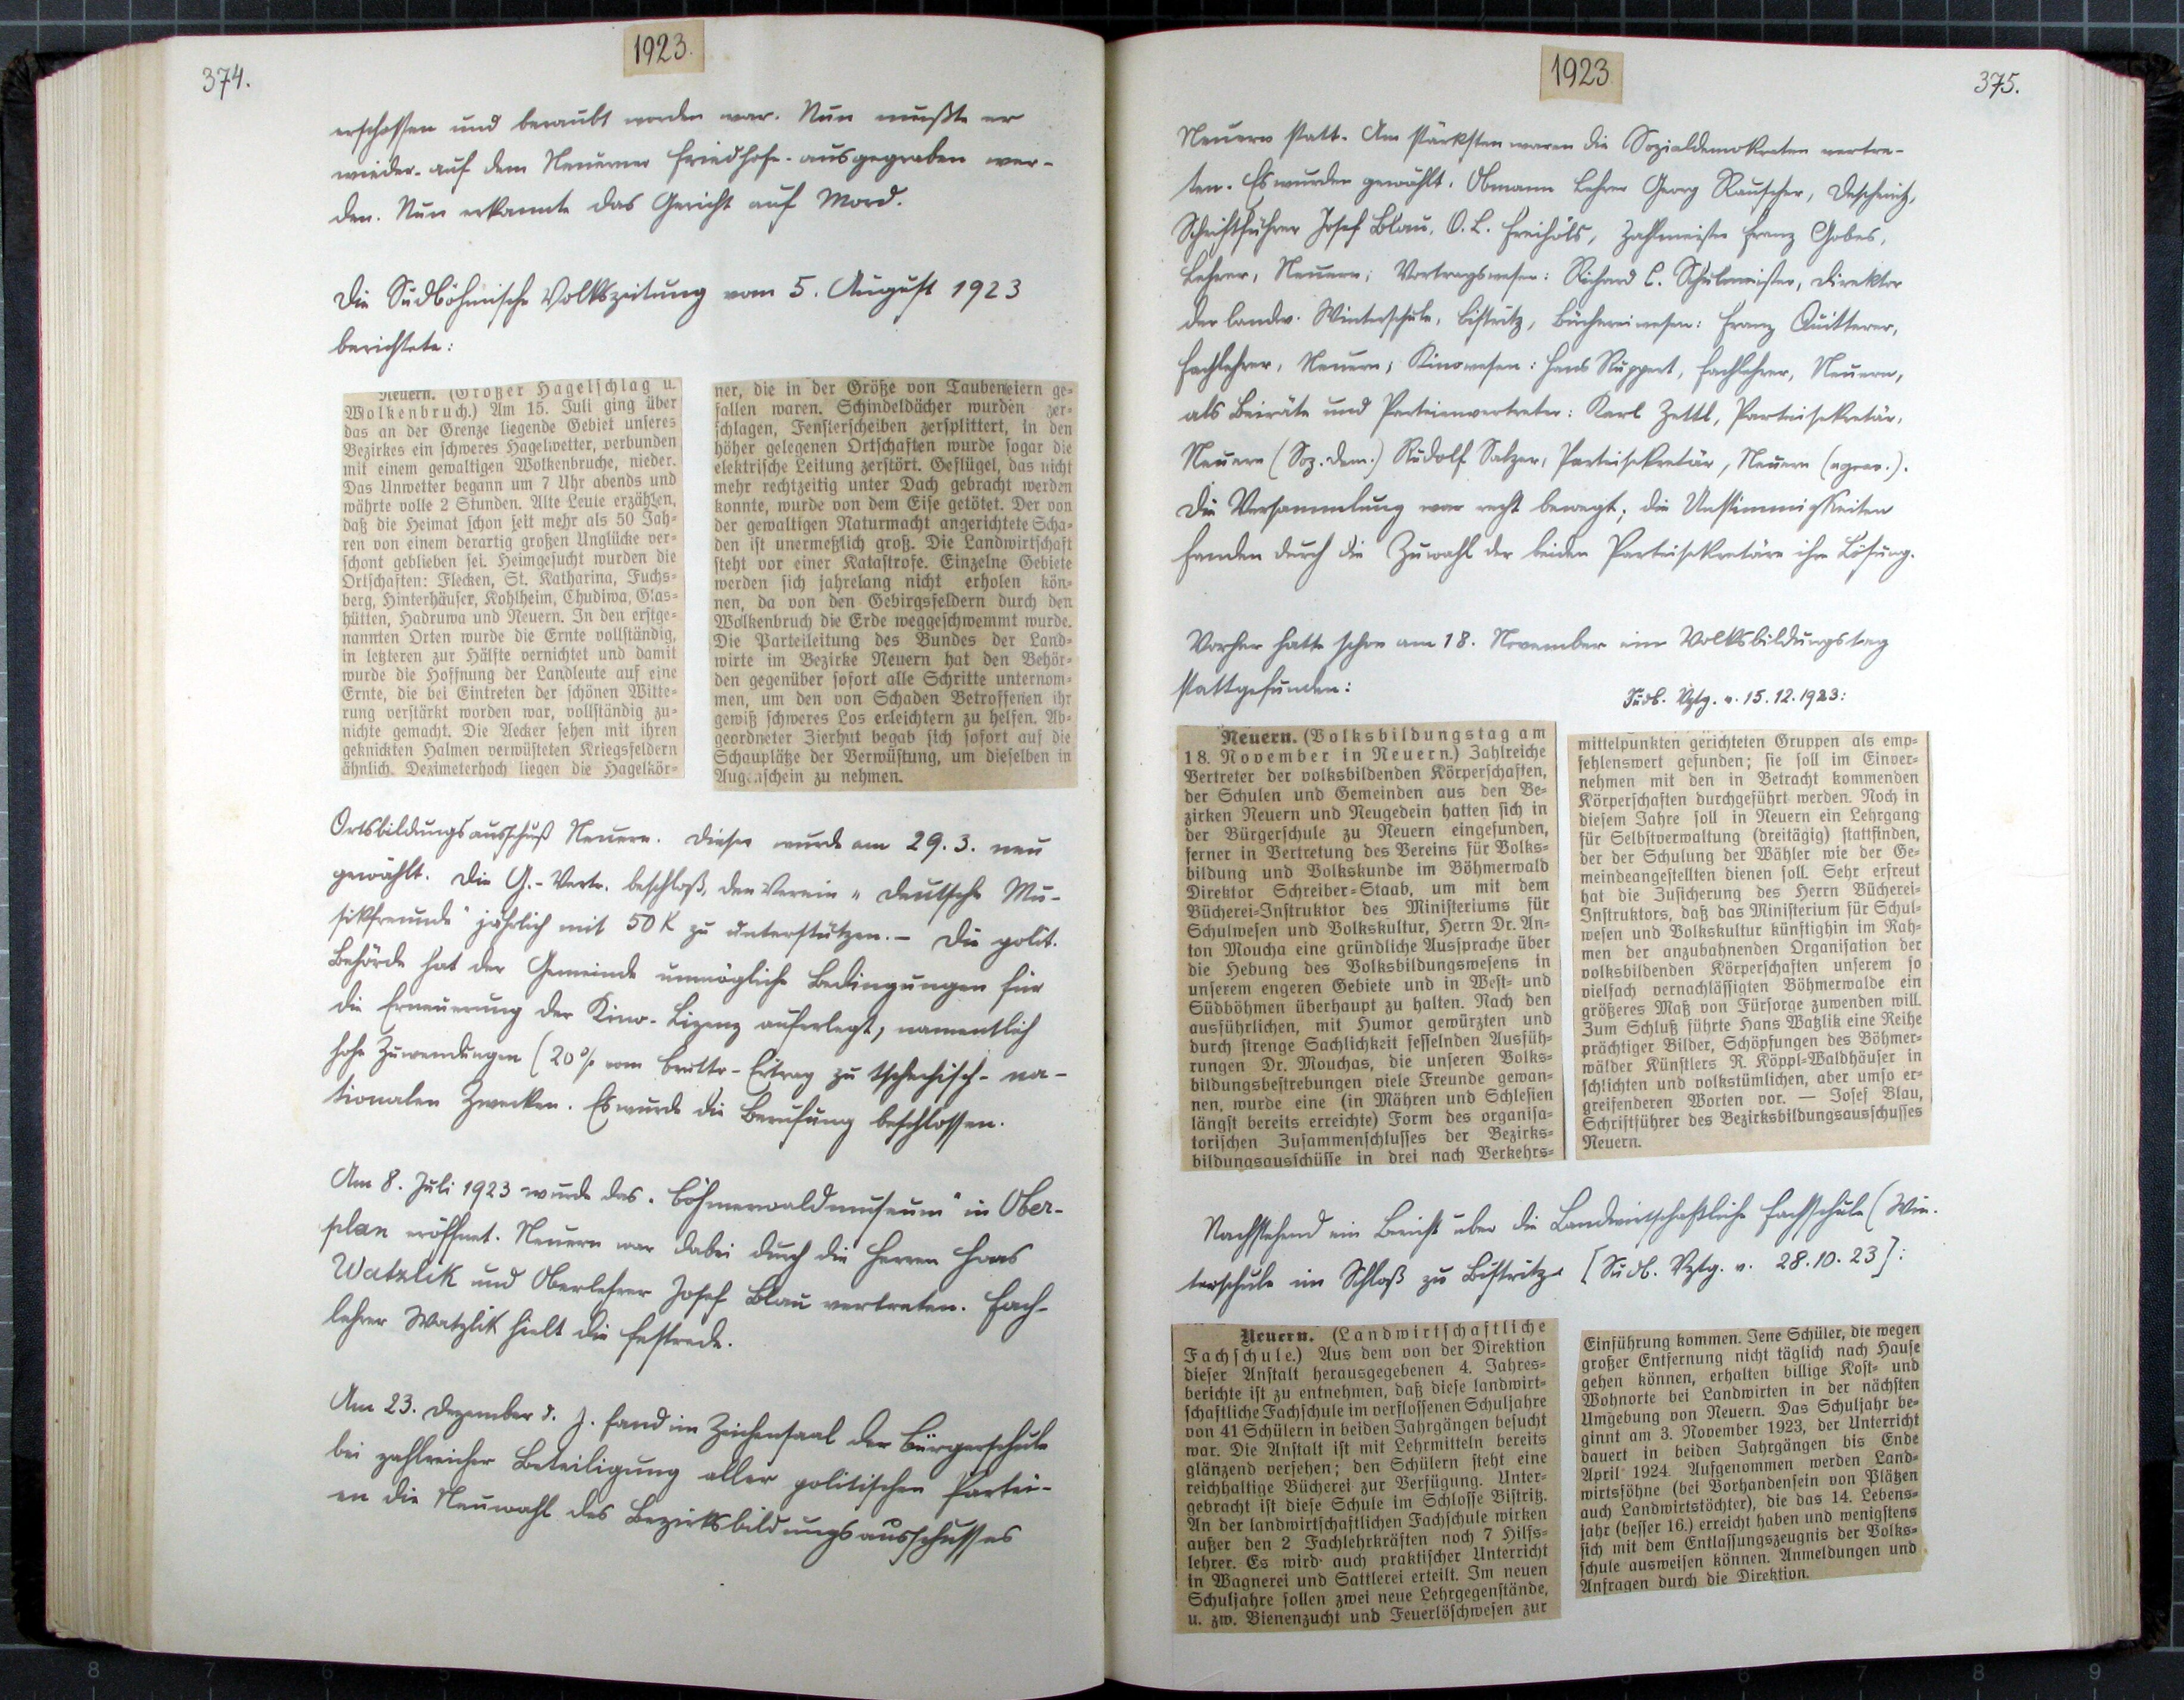 374.
1923.
erschossen und beraubt worden war. Nun mußte er
wieder auf dem Neuerner Friedhofe ausgegraben wer-
den. Nun erkannte das Gericht auf Mord.
Die Südböhmische Volkszeitung vom 5. August 1923
berichtete:
Neuern. (Großer Hagelschlag u.
Wolkenbruch.) Am 15. Juli ging über
das an der Grenze liegende Gebiet unseres
Bezirkes ein schweres Hagelwetter, verbunden
mit einem gewaltigen Wolkenbruche, nieder.
Das Unwetter begann um 7 Uhr abends und
währte volle 2 Stunden. Alte Leute erzählen,
daß die Heimat schon seit mehr als 50 Jah-
ren von einem derartig großen Unglücke ver-
schont geblieben sei. Heimgesucht wurden die
Ortschaften: Flecken, St. Katharina, Fuchs-
berg, Hinterhäuser, Kohlheim, Chudiwa, Glas-
hütten, Hadruwa und Neuern. In den erstge-
nannten Orten wurde die Ernte vollständig,
in letzteren zur Hälfte vernichtet und damit
wurde die Hoffnung der Landleute auf eine
Ernte, die bei Eintreten der schönen Witte-
rung verstärkt worden war, vollständig zu-
nichte gemacht. Die Aecker sehen mit ihren
geknickten Halmen verwüsteten Kriegsfeldern
ähnlich. Dezimeterhoch liegen die Hagelkör-
ner, die in der Größe von Taubeneiern ge-
fallen waren. Schindeldächer wurden zer-
schlagen, Fensterscheiben zersplittert, in den
höher gelegenen Ortschaften wurde sogar die
elektrische Leitung zerstört. Geflügel, das nicht
mehr rechtzeitig unter Dach gebracht werden
konnte, wurde von dem Eise getötet. Der von
der gewaltigen Naturmacht angerichtete Scha-
den ist unermeßlich groß. Die Landwirtschaft
steht vor einer Katastrofe. Einzelne Gebiete
werden sich jahrelang nicht erholen kön-
nen, da von den Gebirgsfeldern durch den
Wolkenbruch die Erde weggeschwemmt wurde.
Die Parteileitung des Bundes der Land-
wirte im Bezirke Neuern hat den Behör-
den gegenüber sofort alle Schritte unternom-
men, um den von Schaden Betroffenen ihr
gewiß schweres Los erleichtern zu helfen. Ab-
geordneter Zierhut begab sich sofort auf die
Schauplätze der Verwüstung, um dieselben in
Augenschein zu nehmen.
Ortsbildungsausschuß Neuern. Dieser wurde am 29. 3. neu
gewählt. Die G.-Vertr. beschloß, den Verein „Deutsche Mu-
sikfreunde" jährlich mit 50 K zu unterstützen. – Die polit.
Behörde hat der Gemeinde unmögliche Bedingungen für
die Erneuerung der Kino-Lizenz auferlegt, namentlich
hohe Zuwendungen (20% vom Brutto-Ertrag zu tschechisch-na-
tionalen Zwecken. Es wurde die Berufung beschlossen.
Am 8. Juli 1923 wurde das „Böhmerwaldmuseum" in Ober-
plan eröffnet. Neuern war dabei durch die Herren Hans
Watzlik und Oberlehrer Josef Blau vertreten. Fach-
lehrer Watzlik hielt die Festrede.
Am 23. Dezember d. J. fand im Zeichensaal der Bürgerschule
bei zahlreicher Beteiligung aller politischen Partei-
en die Neuwahl des Bezirksbildungsausschusses
1923
375.
Neuern statt. Am stärksten waren die Sozialdemokraten vertre-
ten. Es wurden gewählt: Obmann Lehrer Georg Rauscher, Deschenitz,
Schriftführer Josef Blau, O.L. Freihöls, Zahlmeister Franz Gobes,
Lehrer, Neuern; Vortragswesen: Richard C. Schulmeister, Direktor
der landw. Winterschule, Bistritz, Büchereiwesen: Franz Quitterer,
Fachlehrer, Neuern; Kinowesen: Hans Ruppert, Fachlehrer, Neuern,
als Beiräte und Parteienvertreter: Karl Zettl, Parteisekretär,
Neuern (Soz. dem.) Rudolf Salzer, Parteisekretär, Neuern (agrar.).
Die Versammlung war recht bewegt; die Unstimmigkeiten
fanden durch die Zuwahl der beiden Parteisekretäre ihre Lösung.
Vorher hatte schon am 18. November ein Volksbildungstag
stattgefunden:
Südb. Vztg. v. 15. 12. 1923:
Neuern. (Volksbildungstag am
18. November in Neuern.) Zahlreiche
Vertreter der volksbildenden Körperschaften,
der Schulen und Gemeinden aus den Be-
zirken Neuern und Neugedein hatten sich in
der Bürgerschule zu Neuern eingefunden,
ferner in Vertretung des Vereins für Volks-
bildung und Volkskunde im Böhmerwald
Direktor Schreiber-Staab, um mit dem
Bücherei-Instruktor des Ministeriums für
Schulwesen und Volkskultur, Herrn Dr. An-
ton Moucha eine gründliche Aussprache über
die Hebung des Volksbildungswesens in
unserem engeren Gebiete und in West- und
Südböhmen überhaupt zu halten. Nach den
ausführlichen, mit Humor gewürzten und
durch strenge Sachlichkeit fesselnden Ausfüh-
rungen Dr. Mouchas, die unseren Volks-
bildungsbestrebungen viele Freunde gewan-
nen, wurde eine (in Mähren und Schlesien
längst bereits erreichte) Form des organisa-
torischen Zusammenschlusses der Bezirks-
bildungsausschüsse in drei nach Verkehrs-
mittelpunkten gerichteten Gruppen als emp-
fehlenswert gefunden; sie soll im Einver-
nehmen mit den in Betracht kommenden
Körperschaften durchgeführt werden. Noch in
diesem Jahre soll in Neuern ein Lehrgang
für Selbstverwaltung (dreitägig) stattfinden,
der der Schulung der Wähler wie der Ge-
meindeangestellten dienen soll. Sehr erfreut
hat die Zusicherung des Herrn Bücherei-
Instruktors, daß das Ministerium für Schul-
wesen und Volkskultur künftighin im Rah-
men der anzubahnenden Organisation der
volksbildenden Körperschaften unserem so
vielfach vernachlässigten Böhmerwalde ein
größeres Maß von Fürsorge zuwenden will.
Zum Schluß führte Hans Watzlik eine Reihe
prächtiger Bilder, Schöpfungen des Böhmer-
wälder Künstlers R. Köppl-Waldhäuser in
schlichten und volkstümlichen, aber umso er-
greifenderen Worten vor. — Josef Blau,
Schriftführer des Bezirksbildungsausschusses
Neuern.
Nachstehend ein Bericht über die Landwirtschaftliche Fachschule (Win-
terschule im Schloß zu Bistritz. [Südb. Vztg. v. 28. 10. 23]:
Neuern. (Landwirtschaftliche
Fachschule.) Aus dem von der Direktion
dieser Anstalt herausgegebenen 4. Jahres-
berichte ist zu entnehmen, daß diese landwirt-
schaftliche Fachschule im verflossenen Schuljahre
von 41 Schülern in beiden Jahrgängen besucht
war. Die Anstalt ist mit Lehrmitteln bereits
glänzend versehen; den Schülern steht eine
reichhaltige Bücherei zur Verfügung. Unter-
gebracht ist diese Schule im Schlosse Bistritz.
An der landwirtschaftlichen Fachschule wirken
außer den 2 Fachlehrkräften noch 7 Hilfs-
lehrer. Es wird auch praktischer Unterricht
in Wagnerei und Sattlerei erteilt. Im neuen
Schuljahre sollen zwei neue Lehrgegenstände,
u. zw. Bienenzucht und Feuerlöschwesen zur
Einführung kommen. Jene Schüler, die wegen
großer Entfernung nicht täglich nach Hause
gehen können, erhalten billige Kost- und
Wohnorte bei Landwirten in der nächsten
Umgebung von Neuern. Das Schuljahr be-
ginnt am 3. November 1923, der Unterricht
dauert in beiden Jahrgängen bis Ende
April 1924. Aufgenommen werden Land-
wirtsöhne (bei Vorhandensein von Plätzen
auch Landwirtstöchter), die das 14. Lebens-
jahr (besser 16.) erreicht haben und wenigstens
sich mit dem Entlassungszeugnis der Volks-
schule ausweisen können. Anmeldungen und
Anfragen durch die Direktion.
8 7 6 5 6 7 8 9